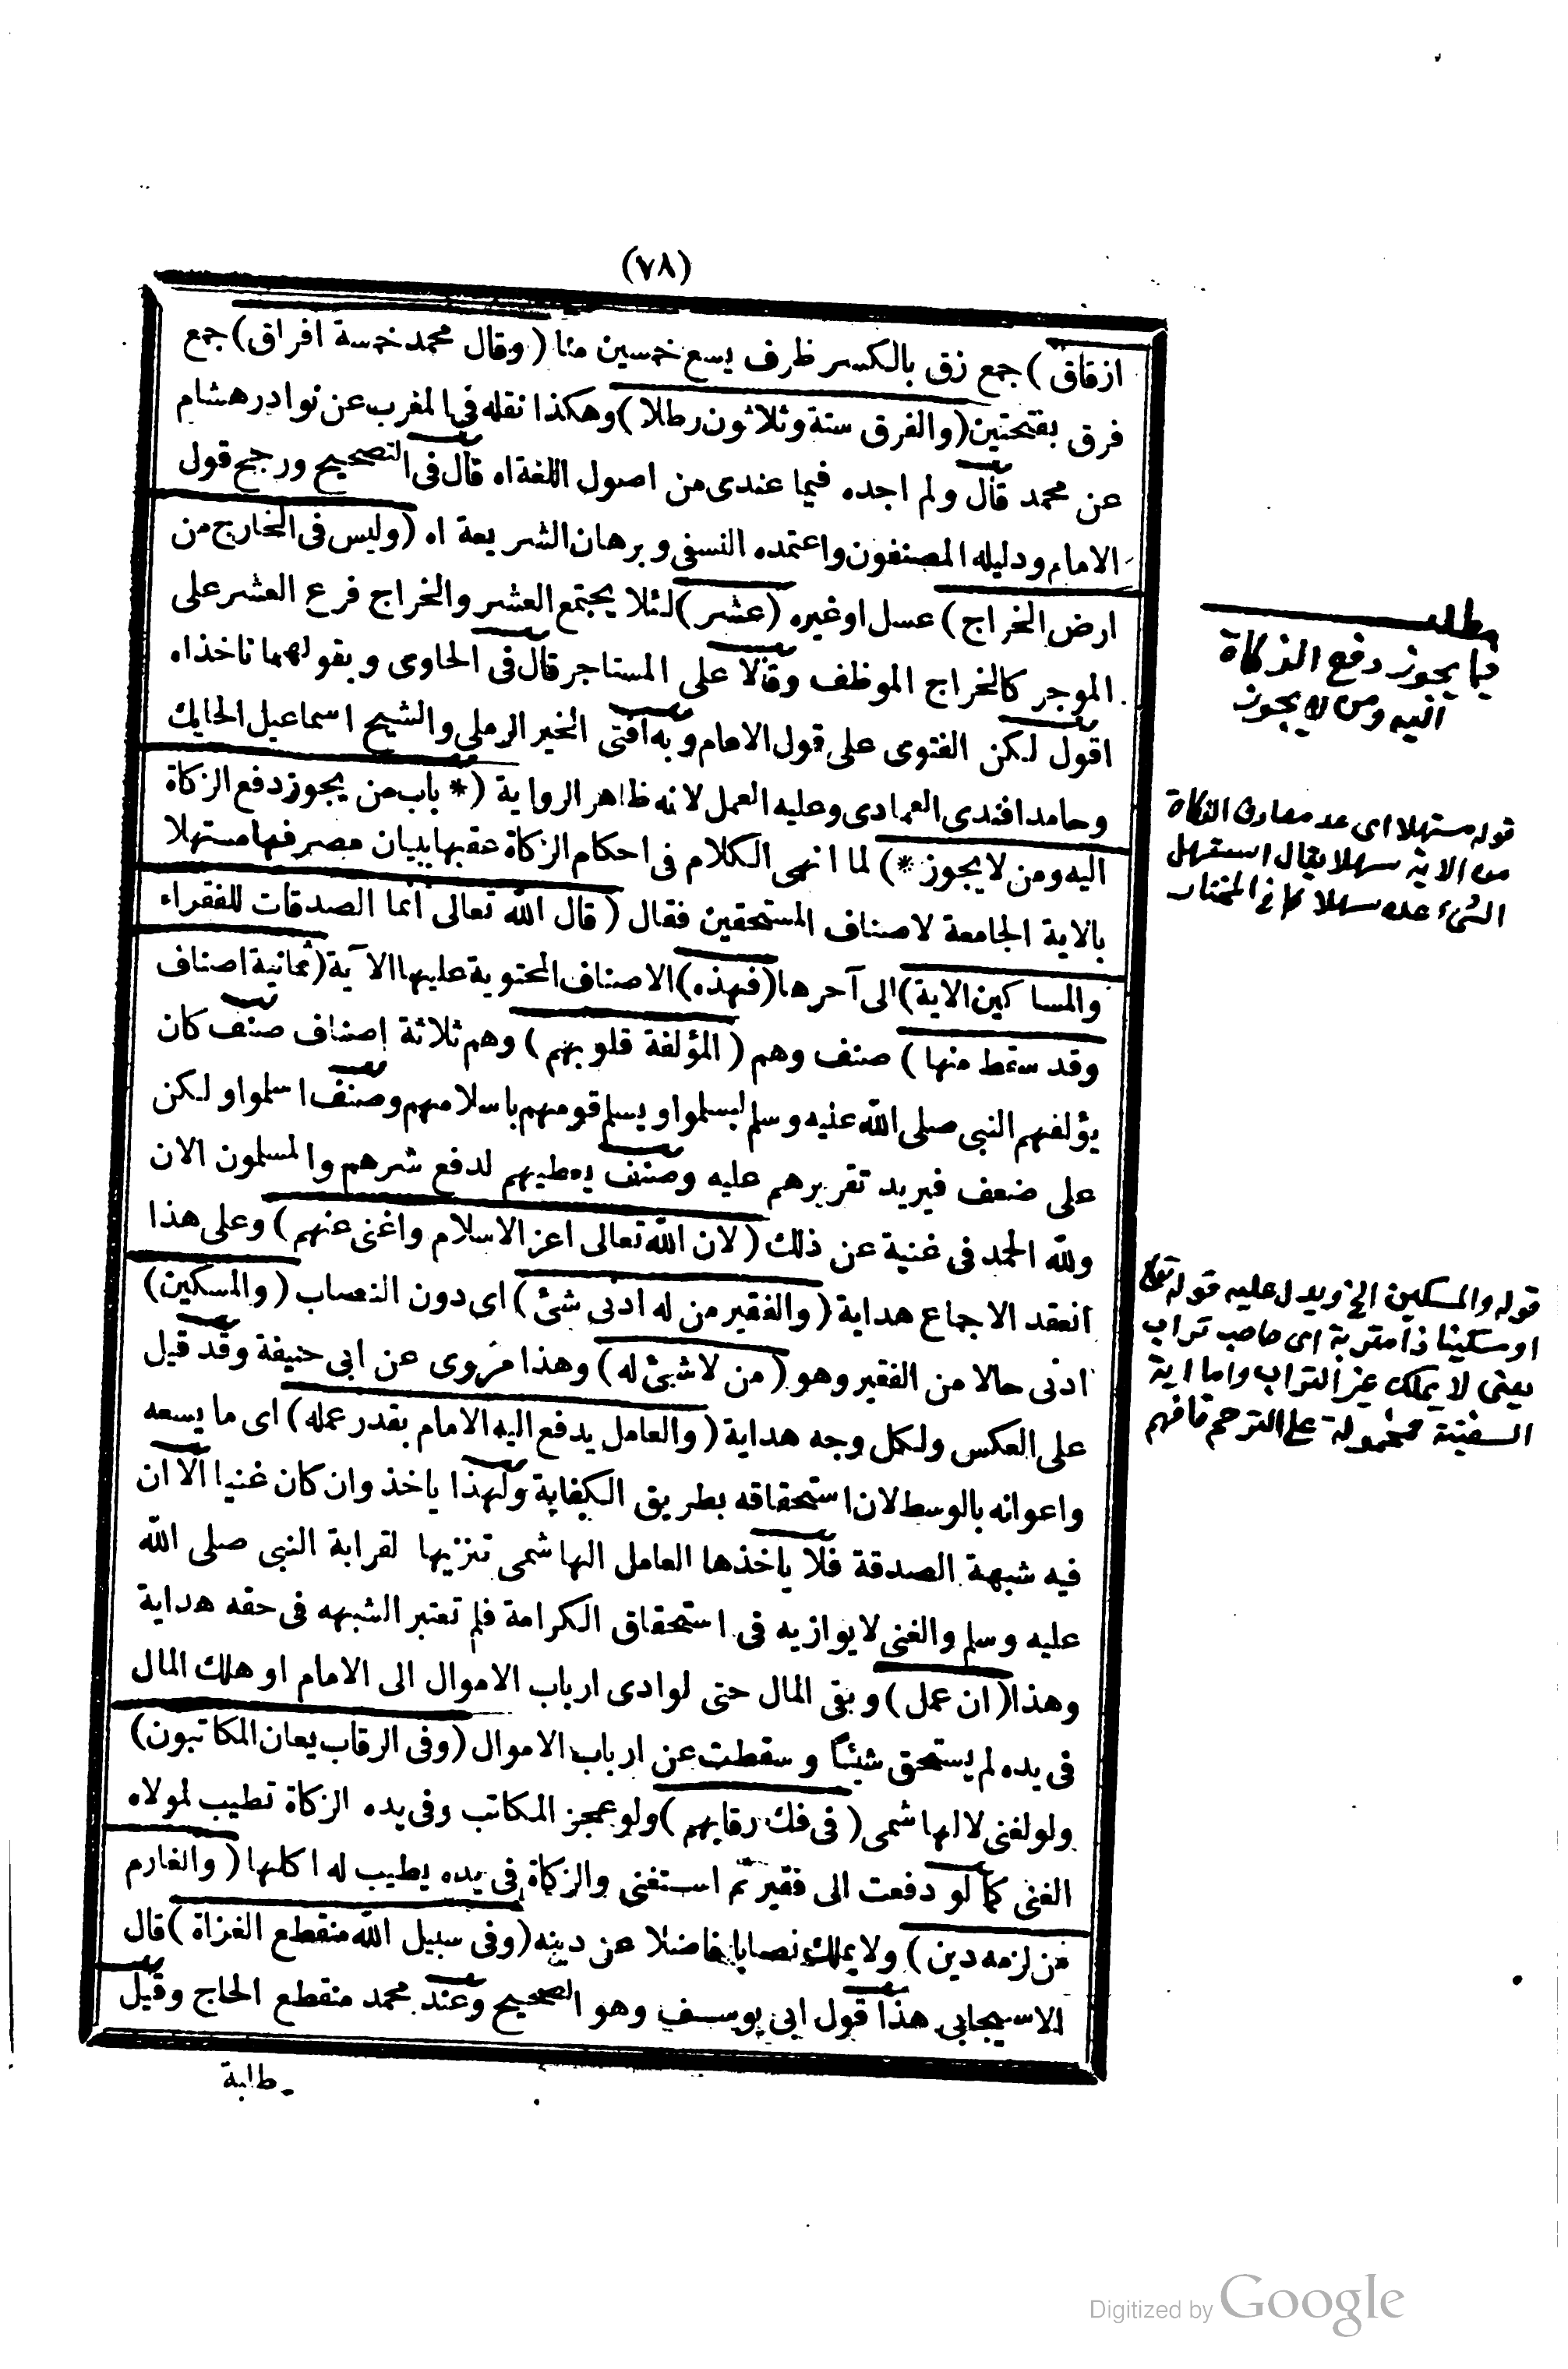 (٧٨)
ازقاق) جمع زق بالكسر ظرف يسع خمسين منا (وقال محمد خمسة افراق) جمع
فرق بفتحتين (والفرق ستة وثلاثون رطلا) وهكذا نقله في المغرب عن نوادر هشام
عن محمد قال ولم اجده فيما عندى من اصول اللغة اه قال فى التصحيح ورجح قول
الامام ودليله المصنفون واعتمده النسفى وبرهان الشريعة اه (وليس فى الخارج من
ارض الخراج) عسل اوغيره (عشر) لئلا يجتمع العشر والخراج فرع العشر على
الموجر كالخراج الموظف وقالا على المستاجر قال فى الحاوى وبقولهما ناخذ اه
اقول لكن الفتوى على قول الامام وبه افتى الخير الرملى والشيخ اسماعيل الحايك
وحامد افندى العمادى وعليه العمل لانه ظاهر الرواية (* باب من يجوز دفع الزكاة
اليه ومن لايجوز *) لما انهى الكلام فى احكام الزكاة عقبها ببيان مصرفها مستهلا
بالاية الجامعة لاصناف المستحقين فقال (قال الله تعالى انما الصدقات للفقراء
والمساكين الاية) الى آخرها (فهذه) الاصناف المحتوية عليها الآية (ثمانية اصناف
وقد سقط منها) صنف وهم (المؤلفة قلوبهم) وهم ثلاثة اصناف صنف كان
يؤلفهم النبى صلى الله عليه وسلم ليسلموا ويسلم قومهم باسلامهم وصنف اسلموا ولكن
على ضعف فيريد تقريرهم عليه وصنف يعطيهم لدفع شرهم والمسلمون الان
ولله الحمد فى غنية عن ذلك (لان الله تعالى اعز الاسلام واغنى عنهم) وعلى هذا
انعقد الاجماع هداية (والفقير من له ادنى شئ) اى دون النصاب (والمسكين)
ادنى حالا من الفقير وهو (من لا شئ له) وهذا مروى عن ابى حنيفة وقد قيل
على العكس ولكل وجه هداية (والعامل يدفع اليه الامام بقدر عمله) اى ما يسعه
واعوانه بالوسط لان استحقاقه بطريق الكفاية ولهذا ياخذ وان كان غنيا الا ان
فيه شبهة الصدقة فلا ياخذها العامل الهاشمى تنزيها لقرابة النبى صلى الله
عليه وسلم والغنى لايوازيه فى استحقاق الكرامة فلم تعتبر الشبهه فى حقه هداية
وهذا (ان عمل) وبقى المال حتى لوادى ارباب الاموال الى الامام او هلك المال
فى يده لم يستحق شيئا وسقطت عن ارباب الاموال (وفى الرقاب يعان المكاتبون)
ولو لغنى لالهاشمى (فى فك رقابهم) ولو عجز المكاتب وفى يده الزكاة تطيب لمولاه
الغنى كما لو دفعت الى فقير ثم استغنى والزكاة فى يده يطيب له اكلها (والغارم
من لزمه دين) ولايملك نصابا فاضلا عن دينه (وفى سبيل الله منقطع الغزاة) قال
الاسبيجابى هذا قول ابى يوسف وهو الصحيح وعند محمد منقطع الحاج وقيل
طلبة
مطلب
فيما يجوز دفع الزكاة
اليه ومن لا يجوز
قوله مستهلا اى عد مصارف الزكاة
من الاية سهلا يقال استسهل
الشىء عده سهلا كما فى المختار
قوله والمسكين الخ ويدل عليه قوله تعالى
او مسكينا ذا متربة اى صاحب تراب
يعنى لا يملك غير التراب واما اية
السفينة محمولة على الترحم فافهم
Digitized by Google